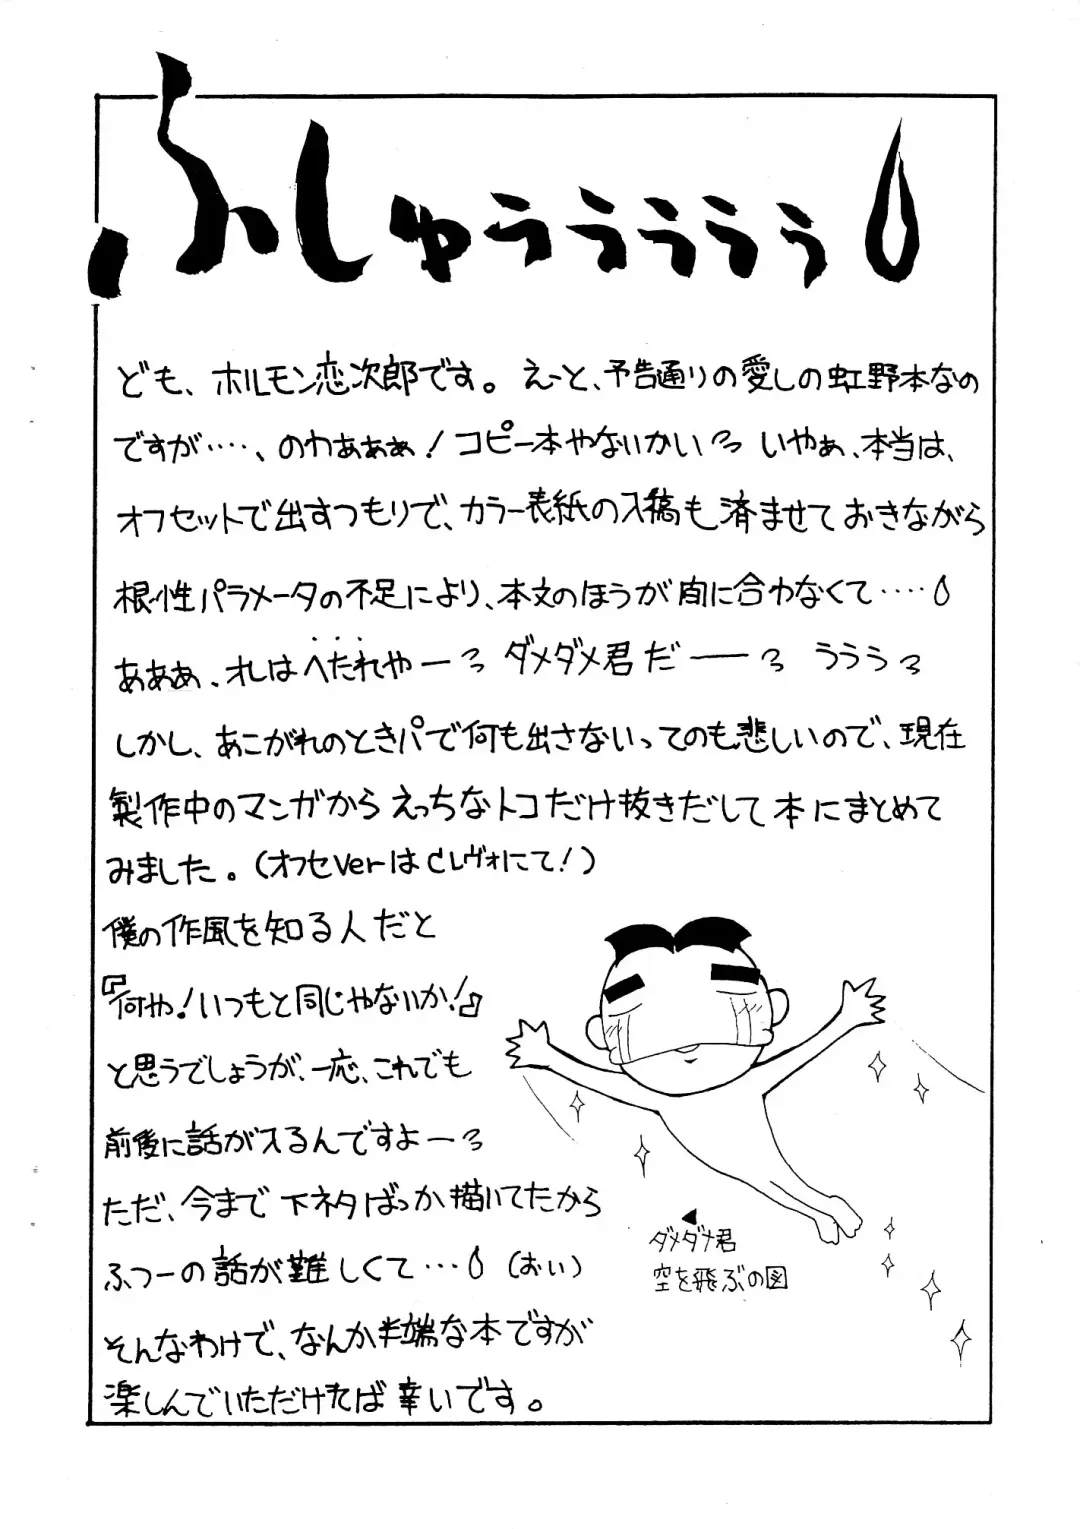 ふしゅぅぅぅぅぅ
ども、ホルモン恋次郎です。えーと、予告通りの愛しの虹野本なの
ですが‥‥、のわあぁぁ!コピー本やないかいっ いやぁ、本当は、
オフセットで出すつもりで、カラー表紙の入稿も済ませておきながら
根性パラメータの不足により、本文のほうが間に合わなくて‥‥
あぁぁ、オレはへたれやーっ ダメダメ君だ――っ うぅぅっ
しかし、あこがれのときパで何も出さないってのも悲しいので、現在
製作中のマンガからえっちなトコだけ抜きだして本にまとめて
みました。(オフセverはCレヴォにて!)
僕の作風を知る人だと
『何や!いつもと同じゃないか!』
と思うでしょうが、一応、これでも
前後に話が入るんですよーっ
ただ、今まで下ネタばっか描いてたから
ふつーの話が難しくて…(おぃ)
そんなわけで、なんか半端な本ですが
楽しんでいただければ幸いです。
ダメダメ君
空を飛ぶの図